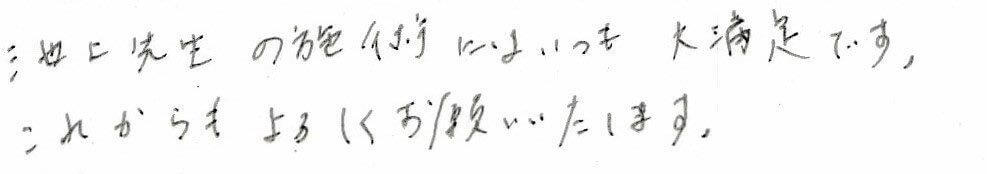 池上先生の施術にはいつも大満足です。
これからもよろしくお願いいたします。